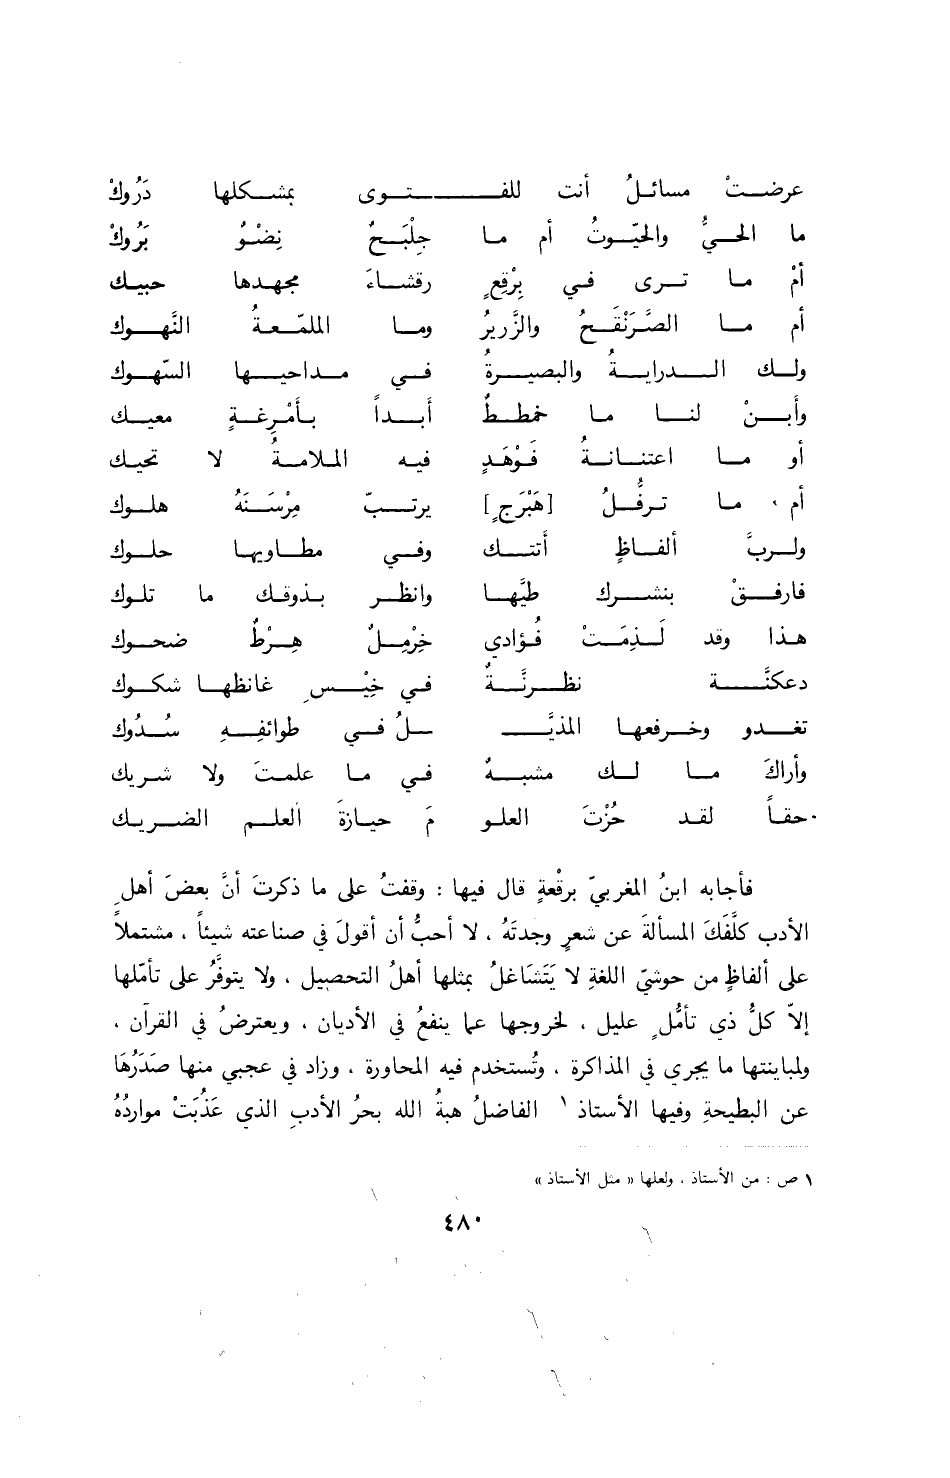 عرضتْ مسائلُ أنت للفتوى بمشكلها دَرُوكْ
ما الحيُّ والحيّوتُ أم ما جِلْبَحٌ نِضْوٌ بَرُوكْ
أمْ ما ترى في بِرْقِعٍ رقشاءَ مجهدها حبيك
أم ما الصَّرَنْقَحُ والزَّريرُ وما الملمّعةُ النَّهوك
ولك الدرايةُ والبصيرةُ في مداحيها السَّهوك
وأبنْ لنا ما خمططٌ أبداً بأمْرغةٍ معيك
أو ما اعتنانةُ فَوْهَدٍ فيه الملامةُ لا تحيك
أم ما ترفُّلُ [هَبْرَجٍ] يرتبّ مِرْسَنَهُ هلوك
ولربَّ ألفاظٍ أتتك وفي مطاويها حلوك
فارفقْ بنشرك طيَّها وانظر بذوقك ما تلوك
هذا وقد لَذِمَتْ فؤادي خِرْمِلٌ هِرْطٌ ضحوك
دعكنَّةٌ نظرنَّةٌ في خِيْسِ غانظها شكوك
تغدو وخرفعها المذيَّـلُ في طوائفهِ سُدُوك
وأراكَ ما لك مشبهٌ في ما علمتَ ولا شريك
حقاً لقد حُزْتَ العلومَ حيازةَ العلمِ الضريك
فأجابه ابنُ المغربيّ برقْعةٍ قال فيها : وقفتُ على ما ذكرتَ أنَّ بعضَ أهلِ
الأدب كلَّفَكَ المسألةَ عن شعرٍ وجدتَهُ ، لا أحبُّ أن أقولَ في صناعته شيئاً ، مشتملاً
على ألفاظٍ من حوشيّ اللغةِ لا يَتَشَاغلُ بمثلها أهلُ التحصيل ، ولا يتوفَّرُ على تأمّلها
إلاّ كلُّ ذي تأمُّلٍ عليل ، لخروجها عما ينفعُ في الأديان ، ويعترضُ في القرآن ،
ولمباينتها ما يجري في المذاكرة ، وتُستخدم فيه المحاورة ، وزاد في عجبي منها صَدَرُهَا
عن البطيحةِ وفيها الأستاذ ١ الفاضلُ هبةُ الله بحرُ الأدبِ الذي عَذُبَتْ مواردُهُ
١ ص : من الأستاذ ، ولعلها « مثل الأستاذ »
٤٨٠